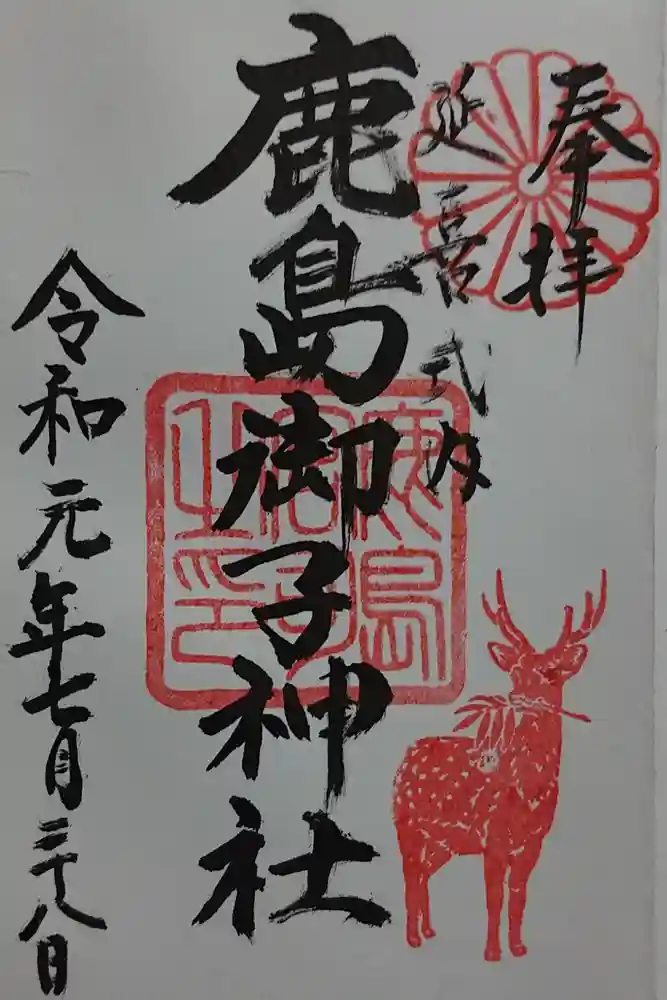 奉拝
延喜式内
鹿島御子神社
令和元年七月二十八日